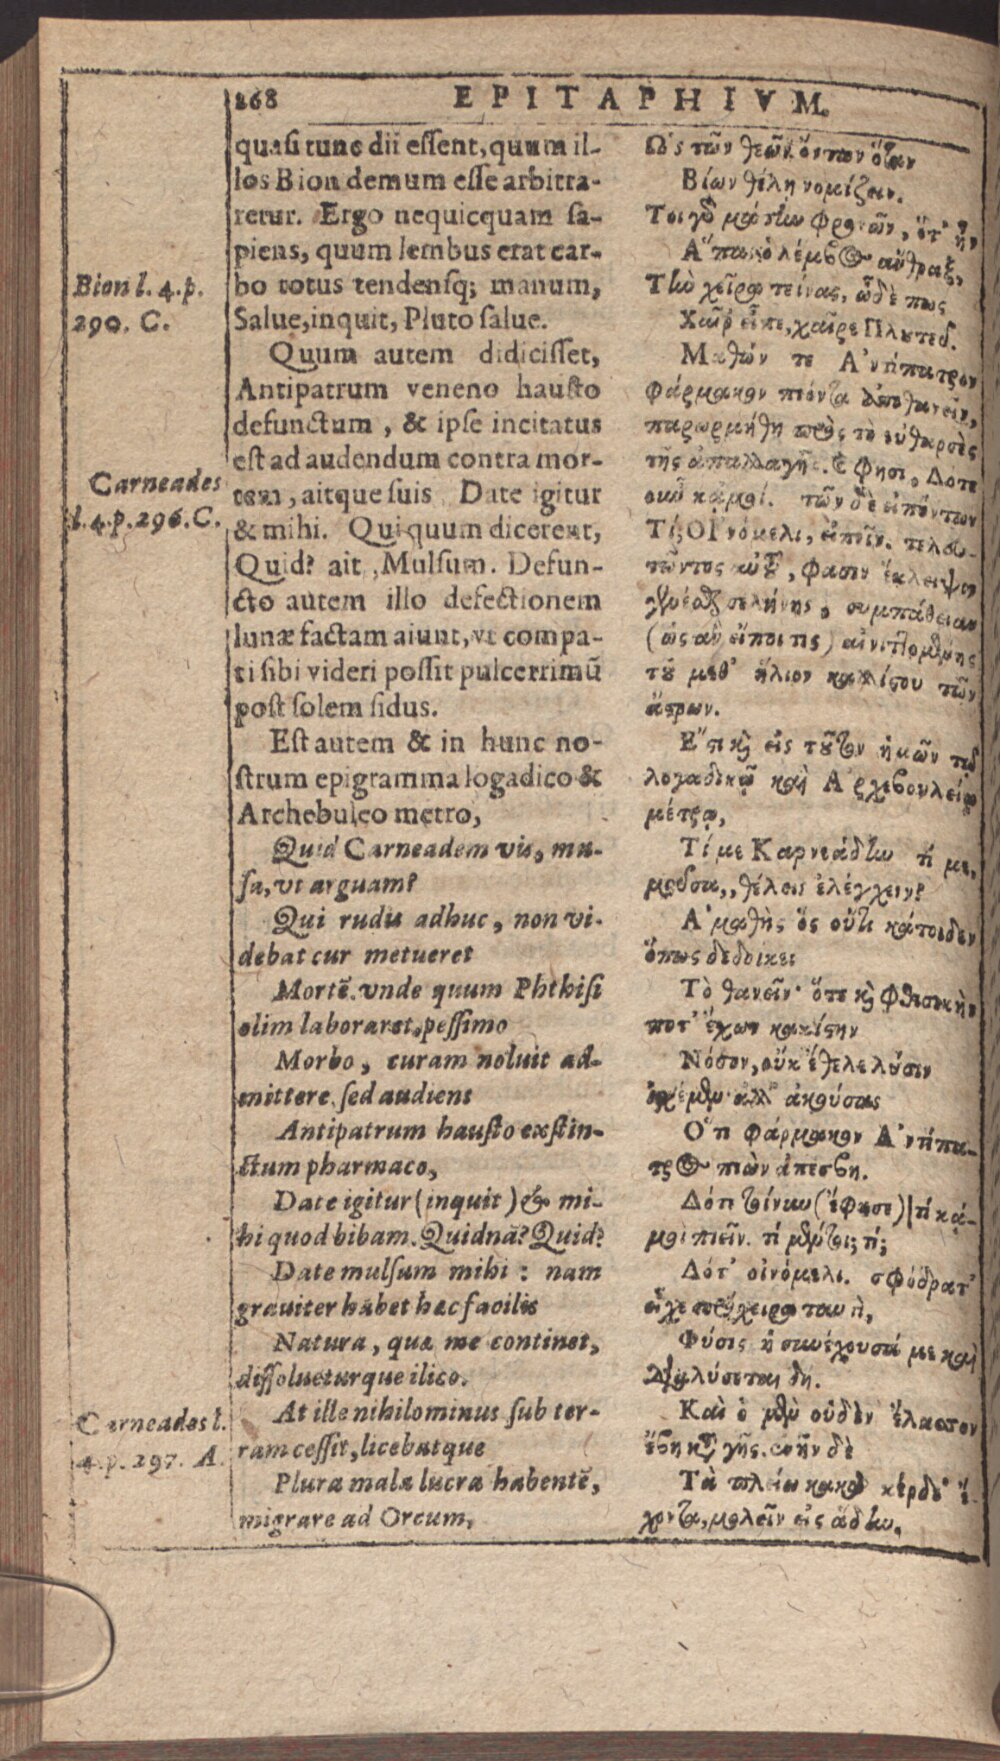 268 EPITAPHIVM.
quasi tunc dii essent, quum il-
los Bion demum esse arbitra-
retur. Ergo nequicquam sa-
piens, quum lembus erat car-
bo totus tendensq; manum,
Salue, inquit, Pluto salue.
Quum autem didicisset,
Antipatrum veneno hausto
defunctum, & ipse incitatus
est ad audendum contra mor-
tem, aitque suis Date igitur
& mihi. Qui quum dicerent,
Quid? ait, Mulsum. Defun-
cto autem illo defectionem
lunæ factam aiunt, vt compa-
ti sibi videri possit pulcerrimũ
post solem sidus.
Est autem & in hunc no-
strum epigramma logadico &
Archebuleo metro,
Quid Carneadem vis, mu-
sa, vt arguam?
Qui rudis adhuc, non vi-
debat cur metueret
Mortẽ. vnde quum Phthisi
olim laboraret, pessimo
Morbo, curam noluit ad-
mittere. sed audiens
Antipatrum hausto exstin-
ctum pharmaco,
Date igitur (inquit) & mi-
hi quod bibam. Quidnã? Quid?
Date mulsum mihi: nam
grauiter habet hæc facilis
Natura, quæ me continet,
dissolueturque ilico.
At ille nihilominus sub ter-
ram cessit, licebatque
Plura mala lucra habentẽ,
migrare ad Orcum,
Bion l. 4. p.
290. C.
Carneades
l. 4. p. 296. C.
Carneades l.
4. p. 297. A.
Ὡς τῶν θεῶν ὄντων ὅταν
Βίων θέλῃ νομίζειν.
Τοιγὰρ μάτην φρονῶν, ὅτ' ἦν
Ἅπας ὁ λέμβος ἄνθραξ,
Τὴν χεῖρα τείνας, ὧδέ πως
Χαῖρ' εἶπε, χαῖρε Πλοῦτεῦ.
Μαθών τε Ἀντίπατρον
φάρμακον πιόντα ἀποθανεῖν,
παρωρμήθη πρὸς τὸ εὐθαρσὲς
τῆς ἀπαλλαγῆς. καὶ φησι, Δότε
οὖν κἀμοί. τῶν δὲ εἰπόντων
Τί; Οἰνόμελι, εἰπεῖν. τελευ-
τῶντος αὐτοῦ, φασιν ἔκλειψιν
γενέσθαι σελήνης, συμπάθειαν
(ὡς ἂν εἴποι τις) αἰνιττομένης
τοῦ μεθ' ἥλιον καλλίστου τῶν
ἄστρων.
Ἔστι καὶ εἰς τοῦτον ἡμῶν τῷ
λογαδικῷ καὶ Ἀρχεβουλείῳ
μέτρῳ,
Τί με Καρνεάδην τί με,
μοῦσα,, θέλεις ἐλέγχειν?
Ἀμαθὴς ὃς οὔτι κάτοιδεν
ὅπως δέδοικε
Τὸ θανεῖν· ὅτε καὶ φθισικήν
ποτ' ἔχων κακίστην
Νόσον, οὐκ ἔθελε λύσιν
ἀλλ' ἀκούσας
Ὅτι φάρμακον Ἀντίπα-
τρος πιὼν ἀπέσβη.
Δότε τοίνυν (ἔφησε) τί κἀ-
μοὶ πιεῖν. τί μέντοι; τί;
Δότ' οἰνόμελι. σφόδρα τ'
εἶχε πρόχειρα ταυτὶ,
Φύσις ἡ συνέχουσά με καὶ
διαλύσεται δή.
Καὶ ὁ μὲν οὐδὲν ἔλασσον
ἔβη κατὰ γῆς. ἐνῆν δὲ
Τὰ πλείω κακὰ κέρδε' ἔ-
χοντα, μολεῖν εἰς ᾅδην.